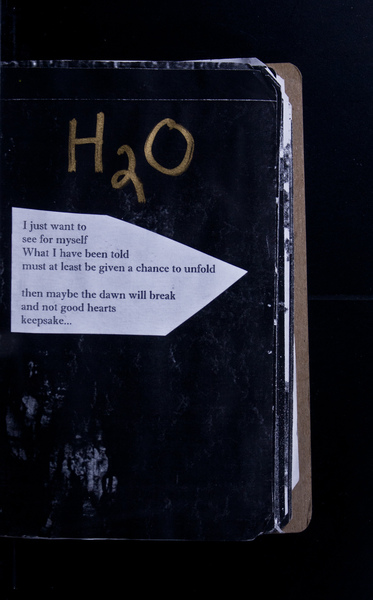 H2O
I just want to
see for myself
What I have been told
must at least be given a chance to unfold
then maybe the dawn will break
and not good hearts
keepsake...